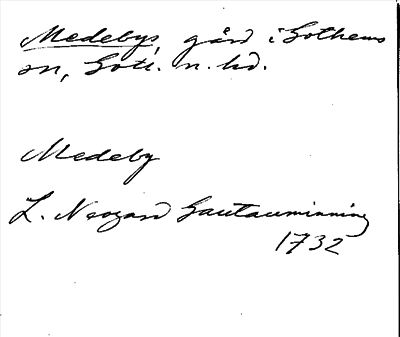 Medebys, gård i Gothems
sn, Gotl. n. hd.
Medeby
L. Neogard Gautauminning
1732